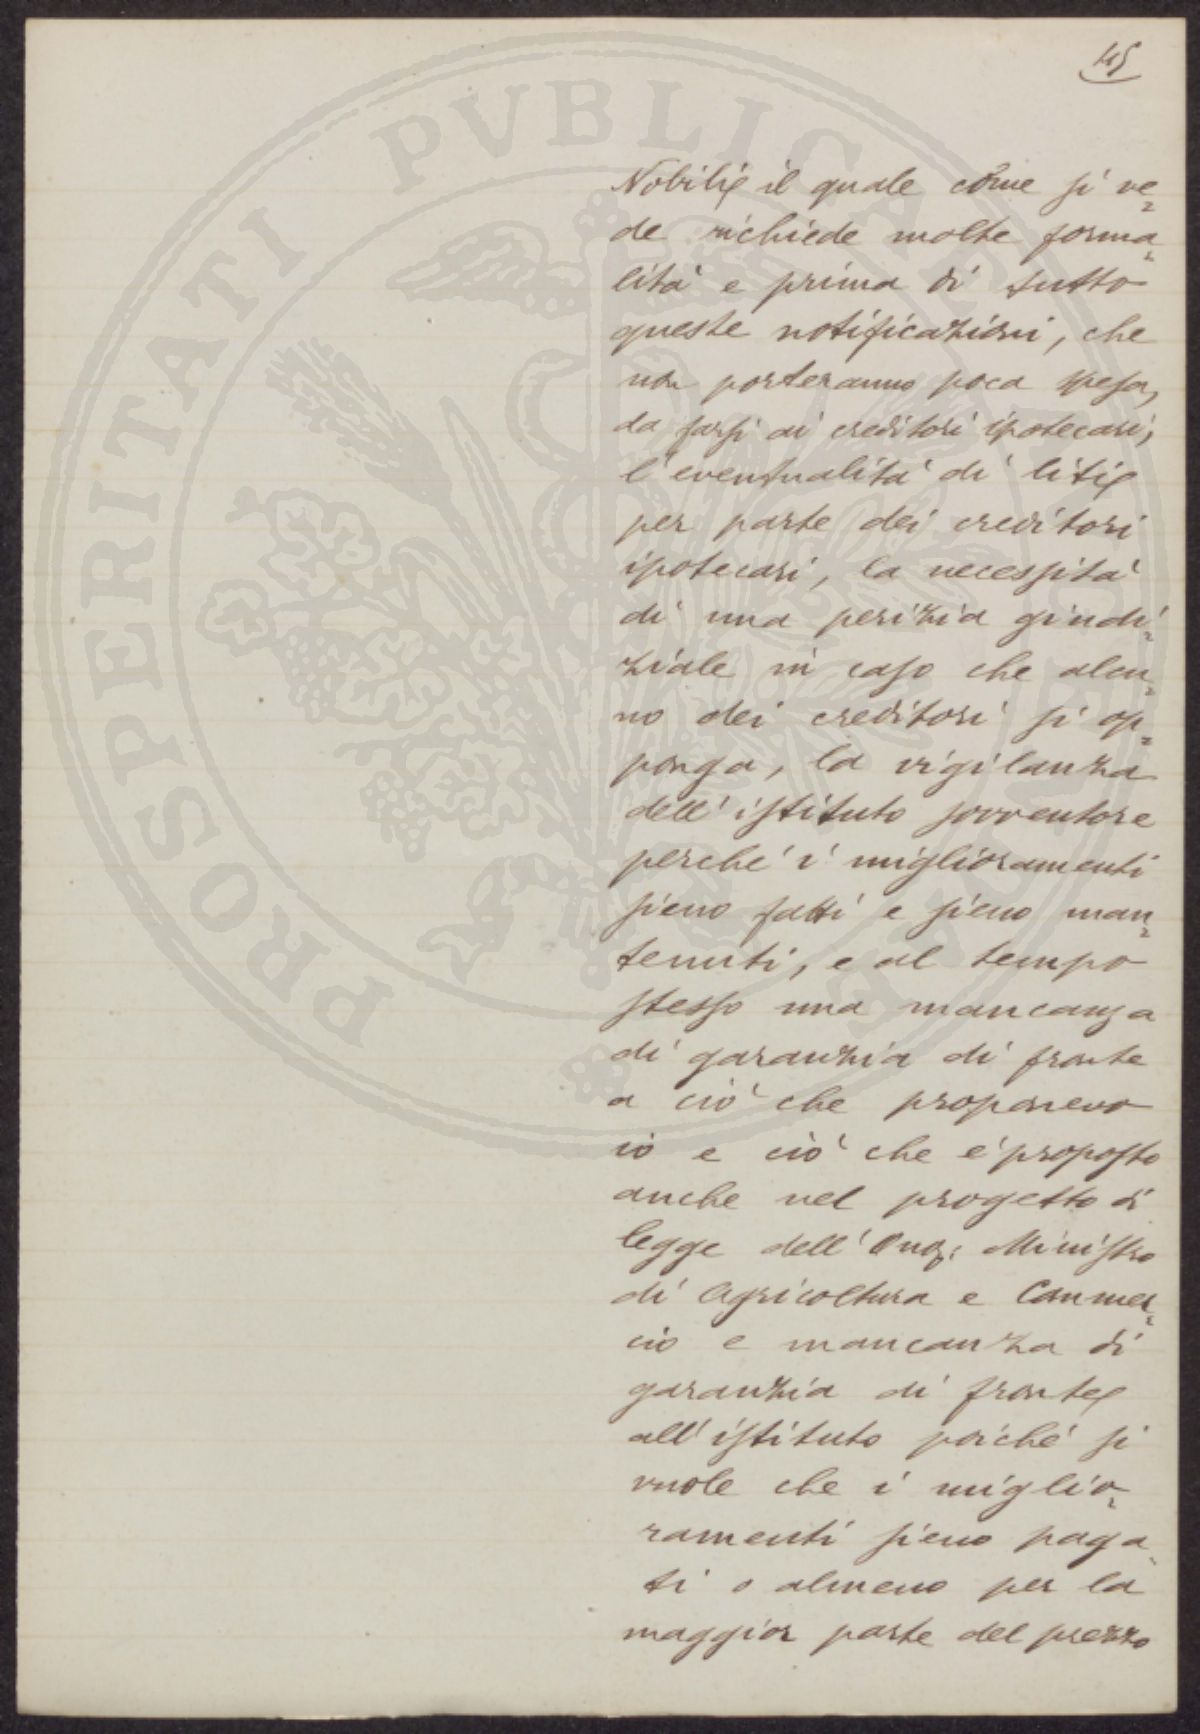 45
PROSPERITATI PVBLICAE
Nobili, il quale come si ve=
de richiede molte forma=
lità e prima di tutto
queste notificazioni, che
non porteranno poca spesa,
da farsi ai creditori ipotecari,
l'eventualità di liti,
per parte dei creditori
ipotecari, la necessità
di una perizia giudi=
ziale in caso che alcu=
no dei creditori si op=
ponga, la vigilanza
dell'istituto sovventore
perchè i miglioramenti
sieno fatti e sieno man=
tenuti, e al tempo
stesso una mancanza
di garanzia di fronte
a ciò che proponevo
io e ciò che è proposto
anche nel progetto di
legge dell'Ono: Ministro
di Agricoltura e Commer=
cio e mancanza di
garanzia di fronte
all'istituto poichè si
vuole che i miglio=
ramenti sieno paga=
ti o almeno per la
maggior parte del prezzo